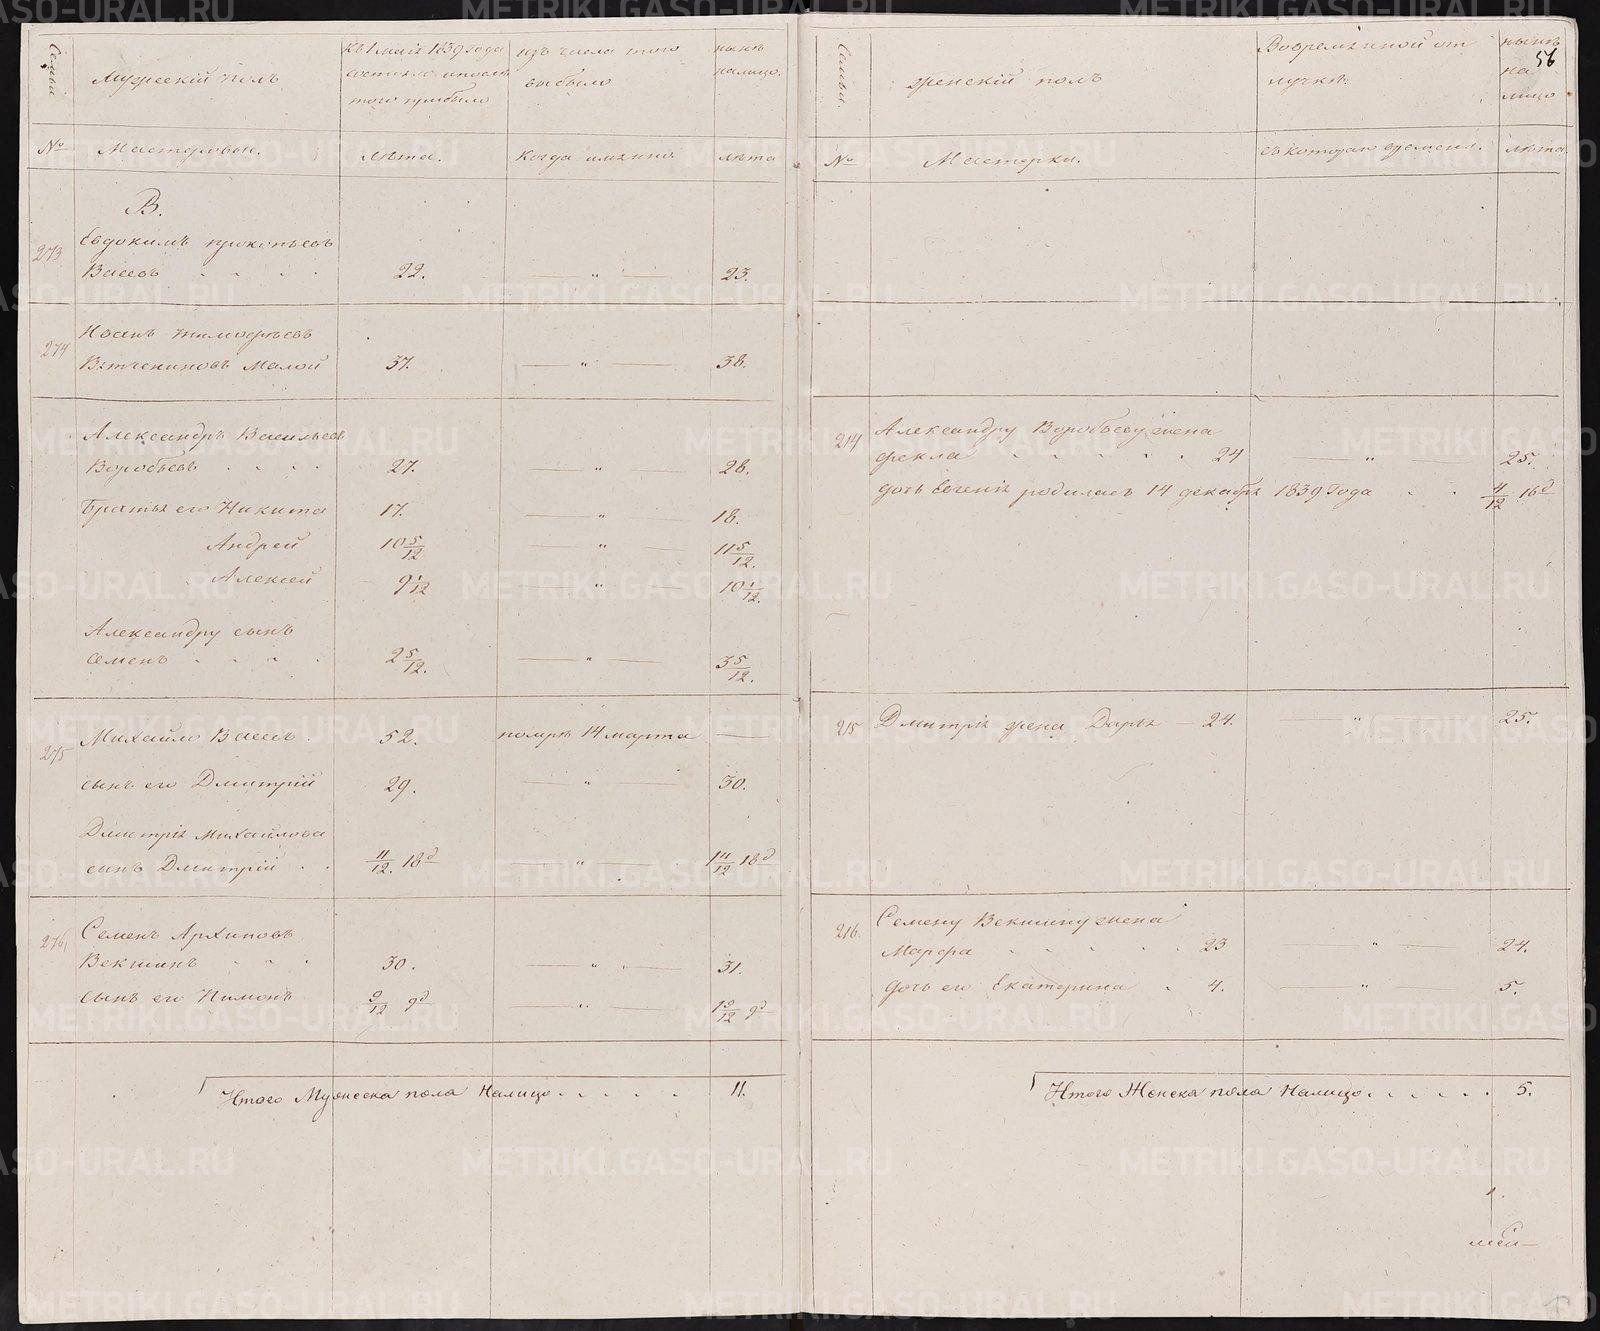 Семьи
Мужескій полъ
Къ 1 маія 1839 года
состояло и посл�
того прибыло
изъ числа того
выбыло
нынѣ
налицо.
№
Мастеровые.
лѣта.
Когда имянно
лѣта
В.
273
Евдокимъ прокопьевъ
Васевъ . . . . 22. — " — 23.
274
Иванъ тимофѣевъ
Вятченниновъ Малой 37. — " — 38.
Александръ Васильевъ
Воробьевъ . . . . 27. — " — 28.
Братья его Никита 17. — " — 18.
Андрей 10 5/12 — " — 11 5/12.
Алексей 9 1/12 — " — 10 1/12.
Александру сынъ
семенъ . . . . 2 5/12. — " — 3 5/12.
275
Михайло Васевъ. 52. помре 14 марта —
сынъ его Дмитрій 29. — " — 30.
Дмитрія Михайлова
сынъ Дмитрій . . 11/12. 18д — " — 1 11/12 18д
276
Семенъ Архиповъ
Векшинъ . . . 30. — " — 31.
сынъ его Пимонъ 9/12 9д — " — 1 9/12 9д
Итого Мужеска пола Налицо . . . . . 11.
Семьи
женскій полъ
Вовременной от
лучкѣ
нынѣ
на
лицо
56
№
Мастерки.
съ котораго времени.
лѣта
214
Александру Воробьеву жена
фекла . . . . . . 24 — " — 25.
дочь Евгенія родилась 14 декабря 1839 года . . 4/12 16д
215
Дмитрія жена Дарья — 24. " 25.
216.
Семену Векшину жена
Марфа . . . . . 23 — " — 24.
дочь его Екатерина . 4. — " — 5.
Итого Женска пола Налицо . . . . . . 5.